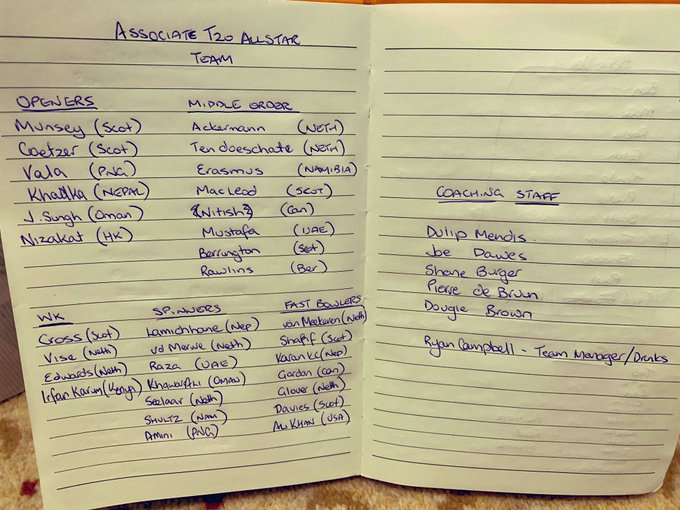 ASSOCIATE T20 ALLSTAR
TEAM
OPENERS
Munsey (Scot)
Coetzer (Scot)
Vala (PNG)
Khadka (NEPAL)
J. Singh (Oman)
Nizakat (HK)
MIDDLE ORDER
Ackermann (NETH)
Ten doeschate (NETH)
Erasmus (NAMIBIA)
MacLeod (SCOT)
{Nitish} (Can)
Mustafa (UAE)
Berrington (Scot)
Rawlins (Ber)
WK
Cross (Scot)
Vise (Neth)
Edwards (Neth)
Irfan Karim (Kenya)
SPINNERS
Lamichhane (Nep)
vd Merwe (Neth)
Raza (UAE)
Khawar Ali (OMAN)
Seelaar (Neth)
Shultz (NAM)
Amini (PNG)
FAST BOWLERS
van Meekeren (Neth)
Sharif (Scot)
Karan KC (Nep)
Gordon (Can)
Glover (Neth)
Davies (Scot)
Ali Khan (USA)
COACHING STAFF
Dulip Mendis
Joe Dawes
Shane Burger
Pierre de Bruyn
Dougie Brown
Ryan Campbell - Team Manager/Drinks